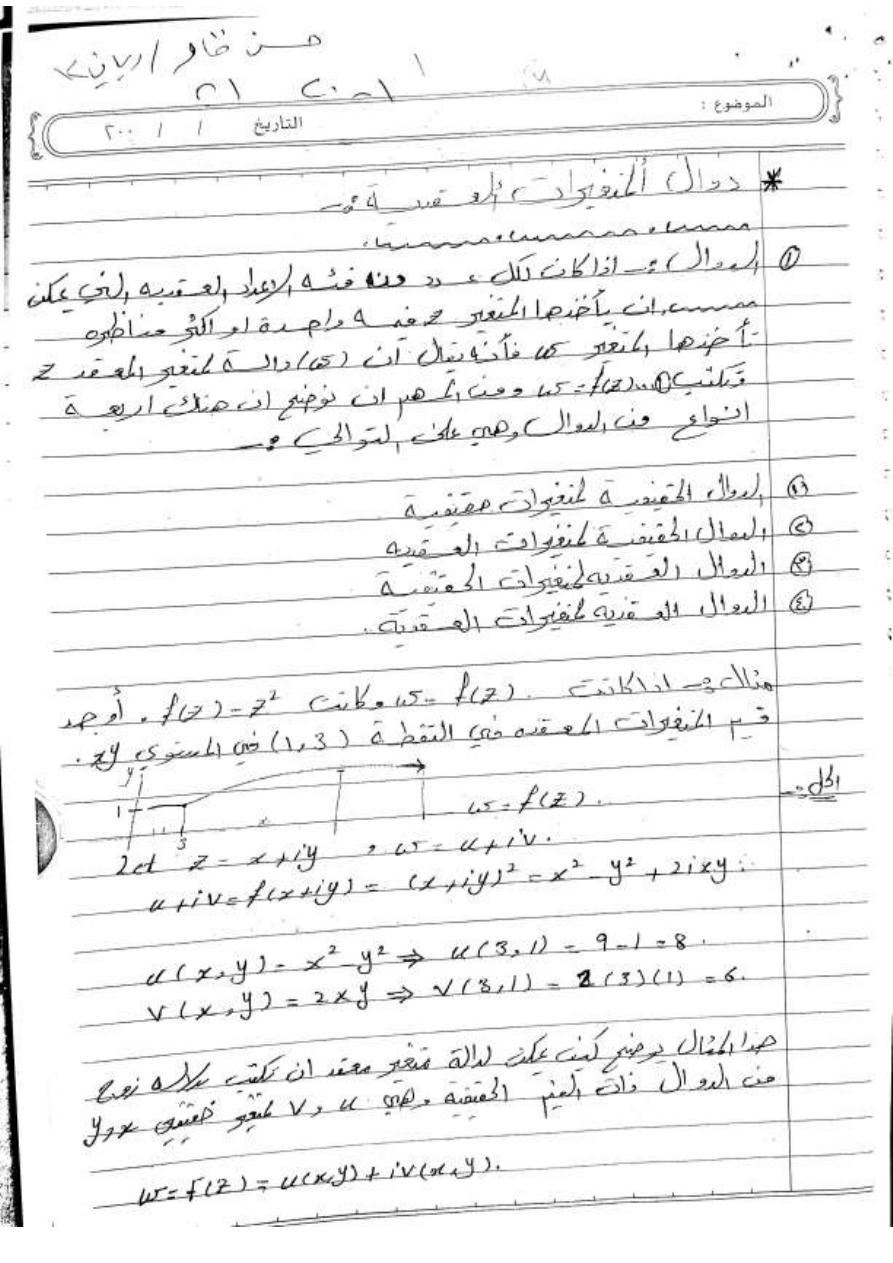 الموضوع :
التاريخ / / ٢٠٠
* دوال المتغيرات العقدية :-
① الدوال :- اذا كان لكل عدد من فئة الاعداد العقديه التي يمكن
ان يأخذها المتغير z قيمة واحدة او اكثر مناظره
تأخذها المتغير w فأنه يقال ان (w) دالة لمتغير المعقد z
وتكتب w = f(z)...① ومن المهم ان نوضح ان هناك اربعة
انواع من الدوال وهي على التوالي :-
(١) الدوال الحقيقية لمتغيرات حقيقية
(٢) الدوال الحقيقية لمتغيرات العقديه
(٣) الدوال العقديه لمتغيرات الحقيقية
(٤) الدوال العقدية لمتغيرات العقدية .
مثال :- اذا كانت w = f(z) . وكانت f(z) = z² . أوجد
قيم المتغيرات المعقده في النقطة (1,3) في المستوي xy .
الحل :-
y
1
3
w = f(z) .
Let z = x+iy , w = u+iv .
u+iv = f(x+iy) = (x+iy)² = x² - y² + 2ixy
u(x,y) = x² - y² ⇒ u(3,1) = 9-1 = 8 .
v(x,y) = 2xy ⇒ v(3,1) = 2(3)(1) = 6.
هذا المثال يوضح كيف يمكن لدالة متغير معقد ان تكتب بدلالة زوج
من الدوال ذات القيم الحقيقية وهي u و v لمتغير حقيقي x و y
w = f(z) = u(x,y) + iv(x,y).